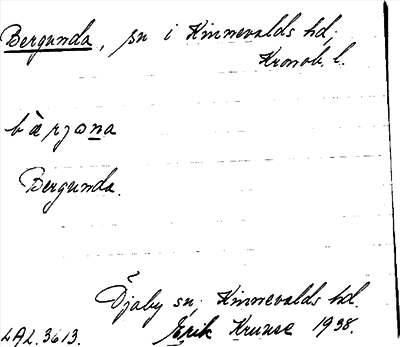 Bergunda, sn i Kinnevalds hd.
Kronob. l.
bærjɷna
Bergunda.
Öjaby sn. Kinnevalds hd.
LAL. 3613. Erik Kruuse 1938.